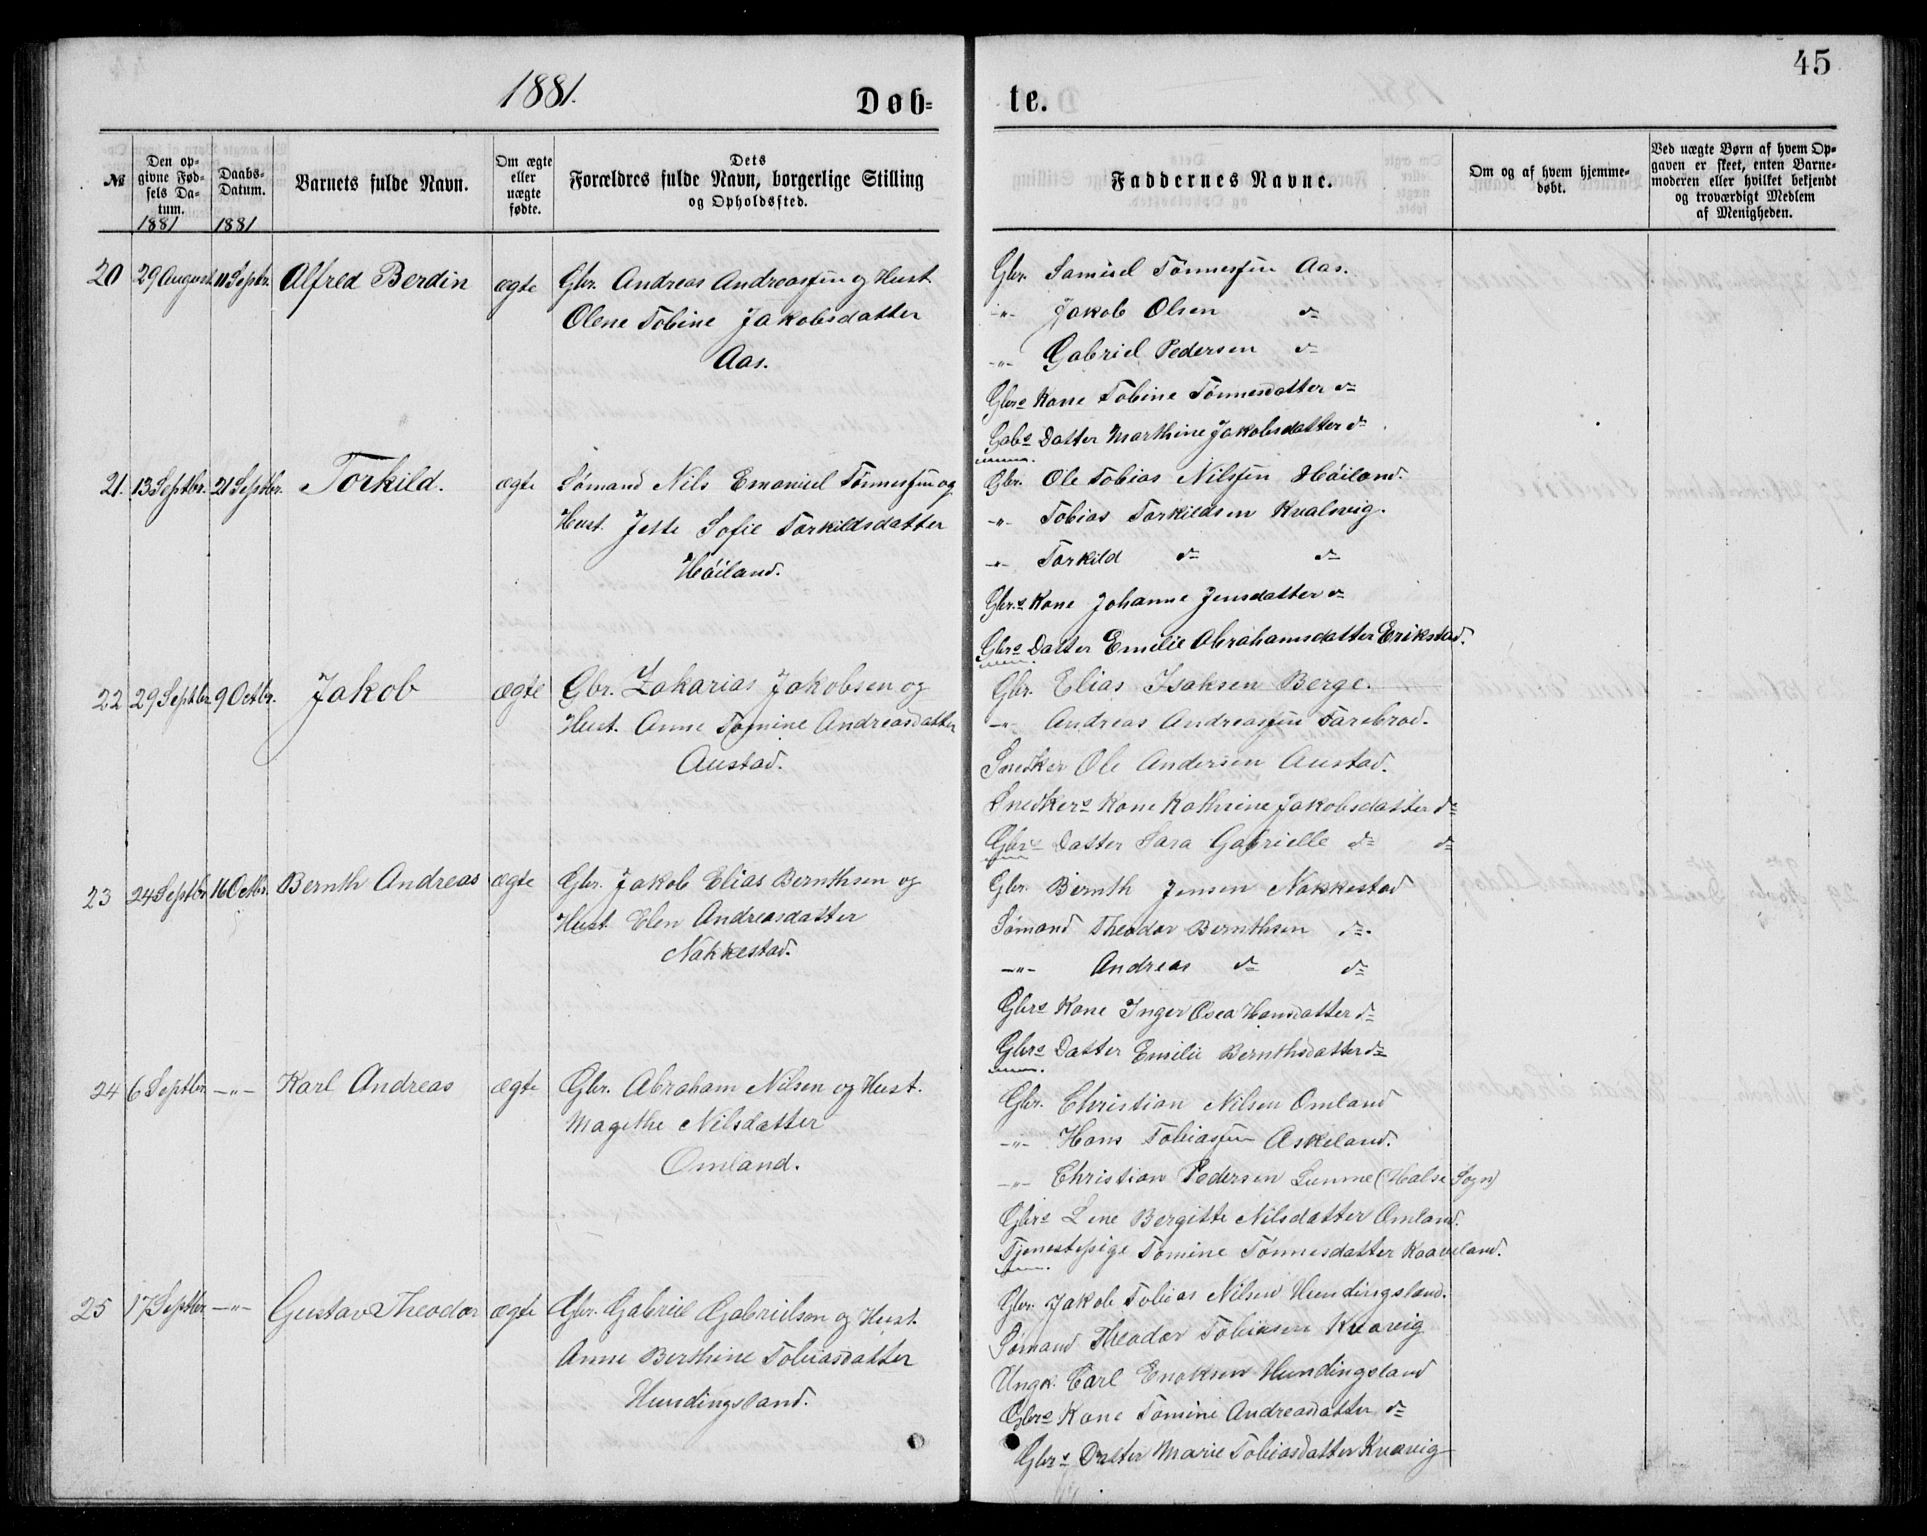 45
1881.
Døb-
te.
№
Den op-
givne Fød-
sels Da-
tum.
1881
Daabs-
Datum.
1881
Barnets fulde Navn.
Om ægte
eller
uægte
fødte.
Dets
Forældres fulde Navn, borgerlige Stilling
og Opholdssted.
Faddernes Navne.
Om og af hvem hjemme-
døbt.
Ved uægte Børn af hvem Op-
gaven er skeet, enten Barne-
moderen eller hvilket bekjendt
og troværdigt Medlem
af Menigheden.
20 29 August 11 Septbr. Alfred Berdin ægte Gbr. Andreas Andreassen og Hust.
Olene Tobine Jakobsdatter
Aas.
Gbr. Samuel Tønnessen Aas.
-"- Jakob Olsen do
-"- Gabriel Pedersen do
Gbrs Kone Tobine Tønnesdatter do
Gabs Datter Marthine Jakobsdatter do
21. 13 Septbr. 21 Septbr. Torkild. ægte Sømand Nils Emanuel Tønnessen og
Hust. Jette Sofie Torkildsdatter
Høiland.
Gbr. Ole Tobias Nilssen Høiland.
-"- Tobias Torkildsen Kvalsvig.
-"- Torkild do do
Gbr.s Kone Johanne Jensdatter do
Gbrs Datter Emilie Abrahamsdatter Erikstad.
22 29 Septbr 9 Octbr. Jakob ægte Gbr. Zakarias Jakobsen og
Hust. Anne Tomine Andreasdatter
Austad.
Gbr. Elias Isaksen Berge.
-"- Andreas Andreassen Farebrod.
Snedker Ole Andersen Austad.
Snedkers Kone Kathrine Jakobsdatter do
Gbrs Datter Sara Gabrielle do do
23 24 Septbr 16 Octbr. Bernth Andreas ægte Gbr. Jakob Elias Bernthsen og
Hust. Elen Andreasdatter
Nakkestad.
Gbr. Bernth Jensen Nakkestad
Sømand Theodor Bernthsen do.
-"- Andreas do do
Gbrs Kone Inger Osea Hansdatter do
Gbrs Datter Emilie Bernthsdatter do
24 6 Septbr. -"- Karl Andreas ægte Gbr. Abraham Nilsen og Hust.
Magethe Nilsdatter
Omland.
Gbr. Christian Nilsen Omland
-"- Hans Tobiassen Askeland.
-"- Christian Pedersen Lunme (Halse Sogn)
Gbrs Lene Bergitte Nilsdatter Omland.
Tjenestepige Tomine Tønnesdatter Kaaveland.
25 17 Septbr. -"- Gustav Theodor ægte Gbr. Gabriel Gabrielsen og Hust.
Anne Berthine Tobiasdatter
Hundingsland.
Gbr. Jakob Tobias Nilsen Hundingsland.
Sømand Theodor Tobiasen Kvavig
Ungk. Carl Enoksen Hundingsland
Gbrs Kone Tomine Andreasdatter do
Gbrs Datter Marie Tobiasdatter Kvavig